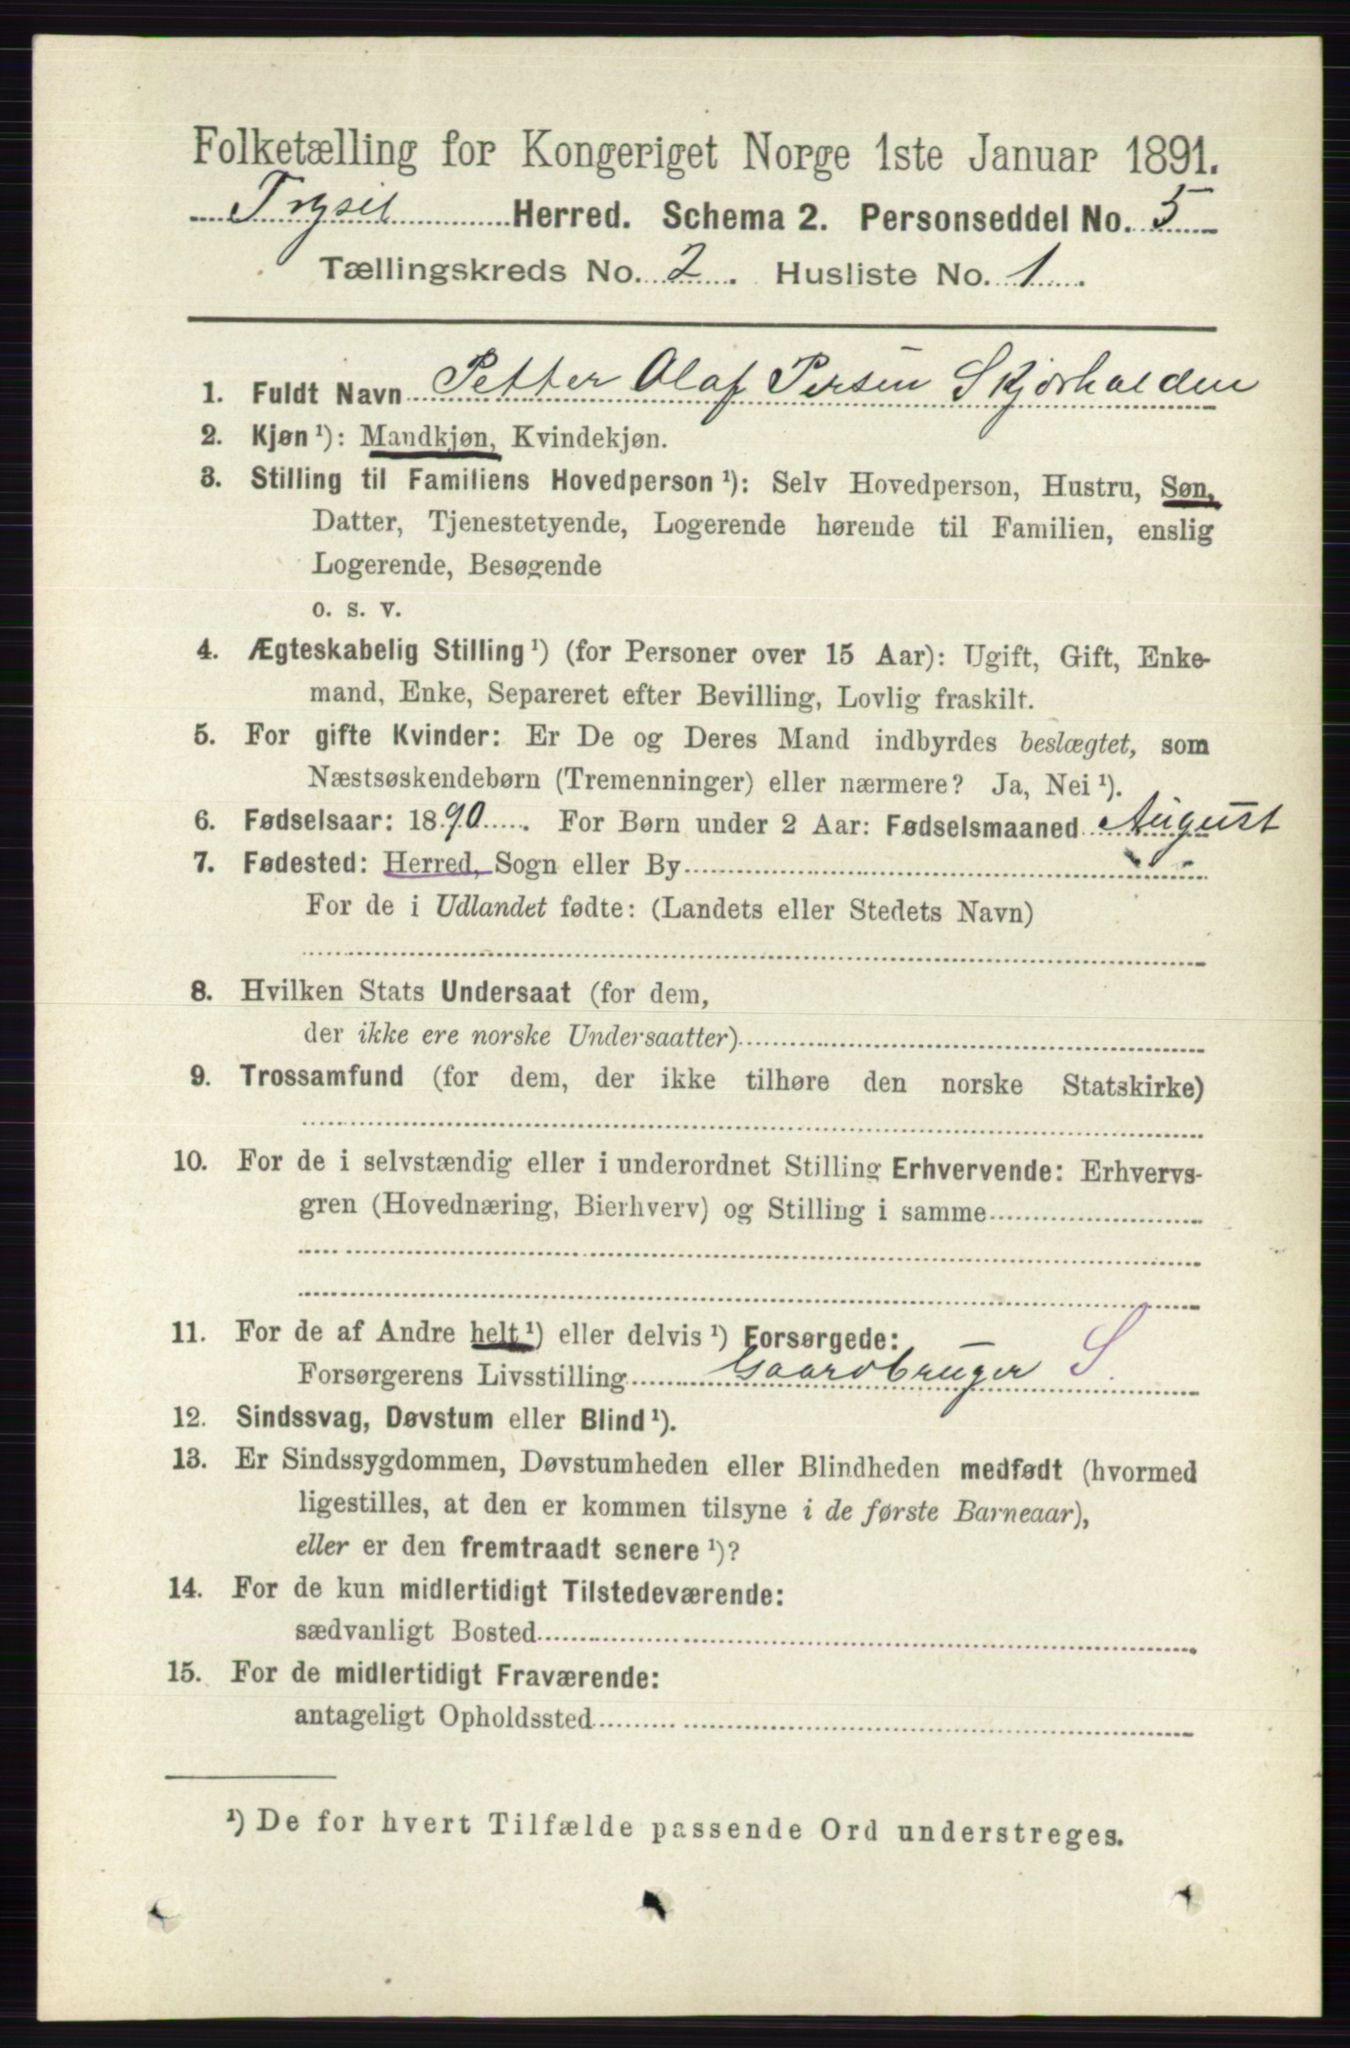 Folketælling for Kongeriget Norge 1ste Januar 1891.
Trysil Herred. Schema 2. Personseddel No. 5
Tællingskreds No. 2. Husliste No. 1.
1. Fuldt Navn Petter Olaf Persen Skjørhalden
2. Kjøn ¹): Mandkjøn, Kvindekjøn.
3. Stilling til Familiens Hovedperson ¹): Selv Hovedperson, Hustru, Søn,
Datter, Tjenestetyende, Logerende hørende til Familien, enslig
Logerende, Besøgende
o. s. v.
4. Ægteskabelig Stilling ¹) (for Personer over 15 Aar): Ugift, Gift, Enke-
mand, Enke, Separeret efter Bevilling, Lovlig fraskilt.
5. For gifte Kvinder: Er De og Deres Mand indbyrdes beslægtet, som
Næstsøskendebørn (Tremenninger) eller nærmere? Ja, Nei ¹).
6. Fødselsaar: 1890. For Børn under 2 Aar: Fødselsmaaned August
7. Fødested: Herred, Sogn eller By
For de i Udlandet fødte: (Landets eller Stedets Navn)
8. Hvilken Stats Undersaat (for dem,
der ikke ere norske Undersaatter)
9. Trossamfund (for dem, der ikke tilhøre den norske Statskirke)
10. For de i selvstændig eller i underordnet Stilling Erhvervende: Erhvervs-
gren (Hovednæring, Bierhverv) og Stilling i samme
11. For de af Andre helt ¹) eller delvis ¹) Forsørgede:
Forsørgerens Livsstilling Gaardbruger S.
12. Sindssvag, Døvstum eller Blind ¹).
13. Er Sindssygdommen, Døvstumheden eller Blindheden medfødt (hvormed
ligestilles, at den er kommen tilsyne i de første Barneaar),
eller er den fremtraadt senere ¹)?
14. For de kun midlertidigt Tilstedeværende:
sædvanligt Bosted
15. For de midlertidigt Fraværende:
antageligt Opholdssted
¹) De for hvert Tilfælde passende Ord understreges.